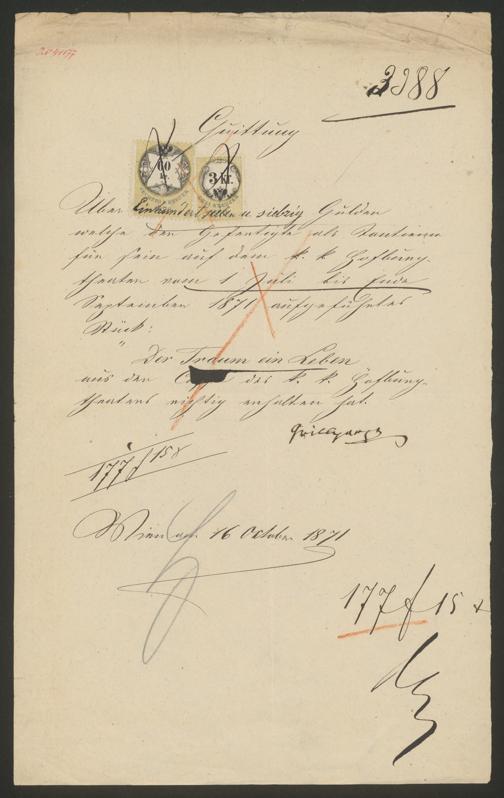 3988
Quittung
60 kr.
3 kr.
Über Einhundert sieben u siebzig Gulden
welche der Gefertigte als Tantieme
für sein auf dem k. k. Hofburg-
theater vom 1 Juli bis Ende
September 1871 aufgeführtes
Stück:
Der Traum ein Leben
aus der des k. k. Hofburg-
theaters richtig erhalten hat.
Grillparzer
177 f 15 x
Wien am 16 October 1871
177 f 15 x